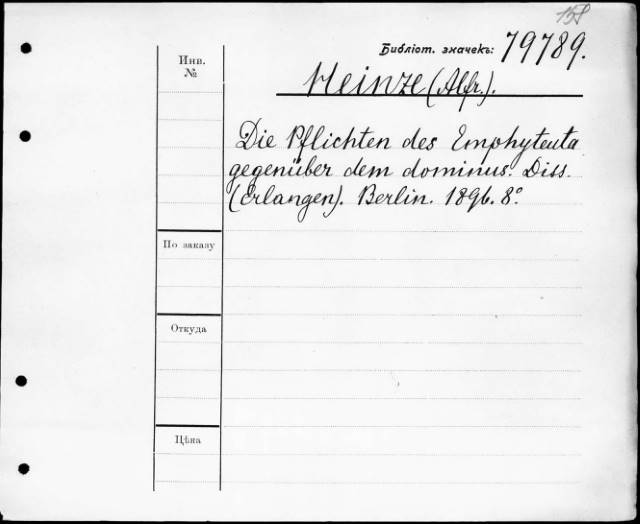 158
Библіот. значекъ: 79789.
Инв.
№
Heinze (Alfr.).
Die Pflichten des Emphyteuta
gegenüber dem dominus. Diss.
(Erlangen). Berlin. 1896. 8°.
По заказу
Откуда
Цѣна